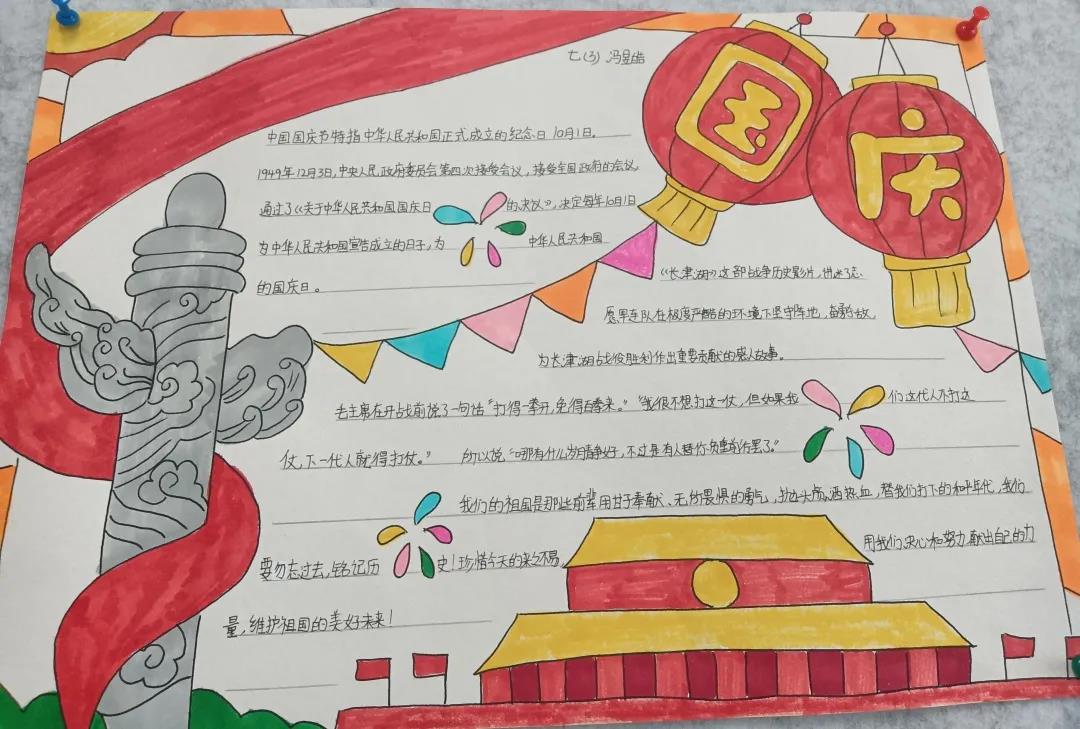 七(3) 冯昱皓
国庆
中国国庆节特指中华人民共和国正式成立的纪念日10月1日。
1949年12月3日,中央人民政府委员会第四次接受会议,接受全国政府的会议,
通过了《关于中华人民共和国国庆日的决议》,决定每年10月1日
为中华人民共和国宣告成立的日子,为中华人民共和国
的国庆日。
《长津湖》这部战争历史影片,讲述了志
愿军连队在极度严酷的环境下坚守阵地,奋勇杀敌,
为长津湖战役胜利作出重要贡献的感人故事。
毛主席在开战前说了一句话“打得一拳开,免得百拳来。”“我很不想打这一仗,但如果我们这代人不打这
仗,下一代人就得打仗。” 所以说,“哪有什么岁月静好,不过是有人替你负重前行罢了。”
我们的祖国是那些前辈用甘于奉献、无所畏惧的勇气,抛头颅,洒热血,替我们打下的和平年代,我们
要勿忘过去,铭记历史!珍惜今天的来之不易 用我们决心和努力,献出自己的力
量,维护祖国的美好未来!